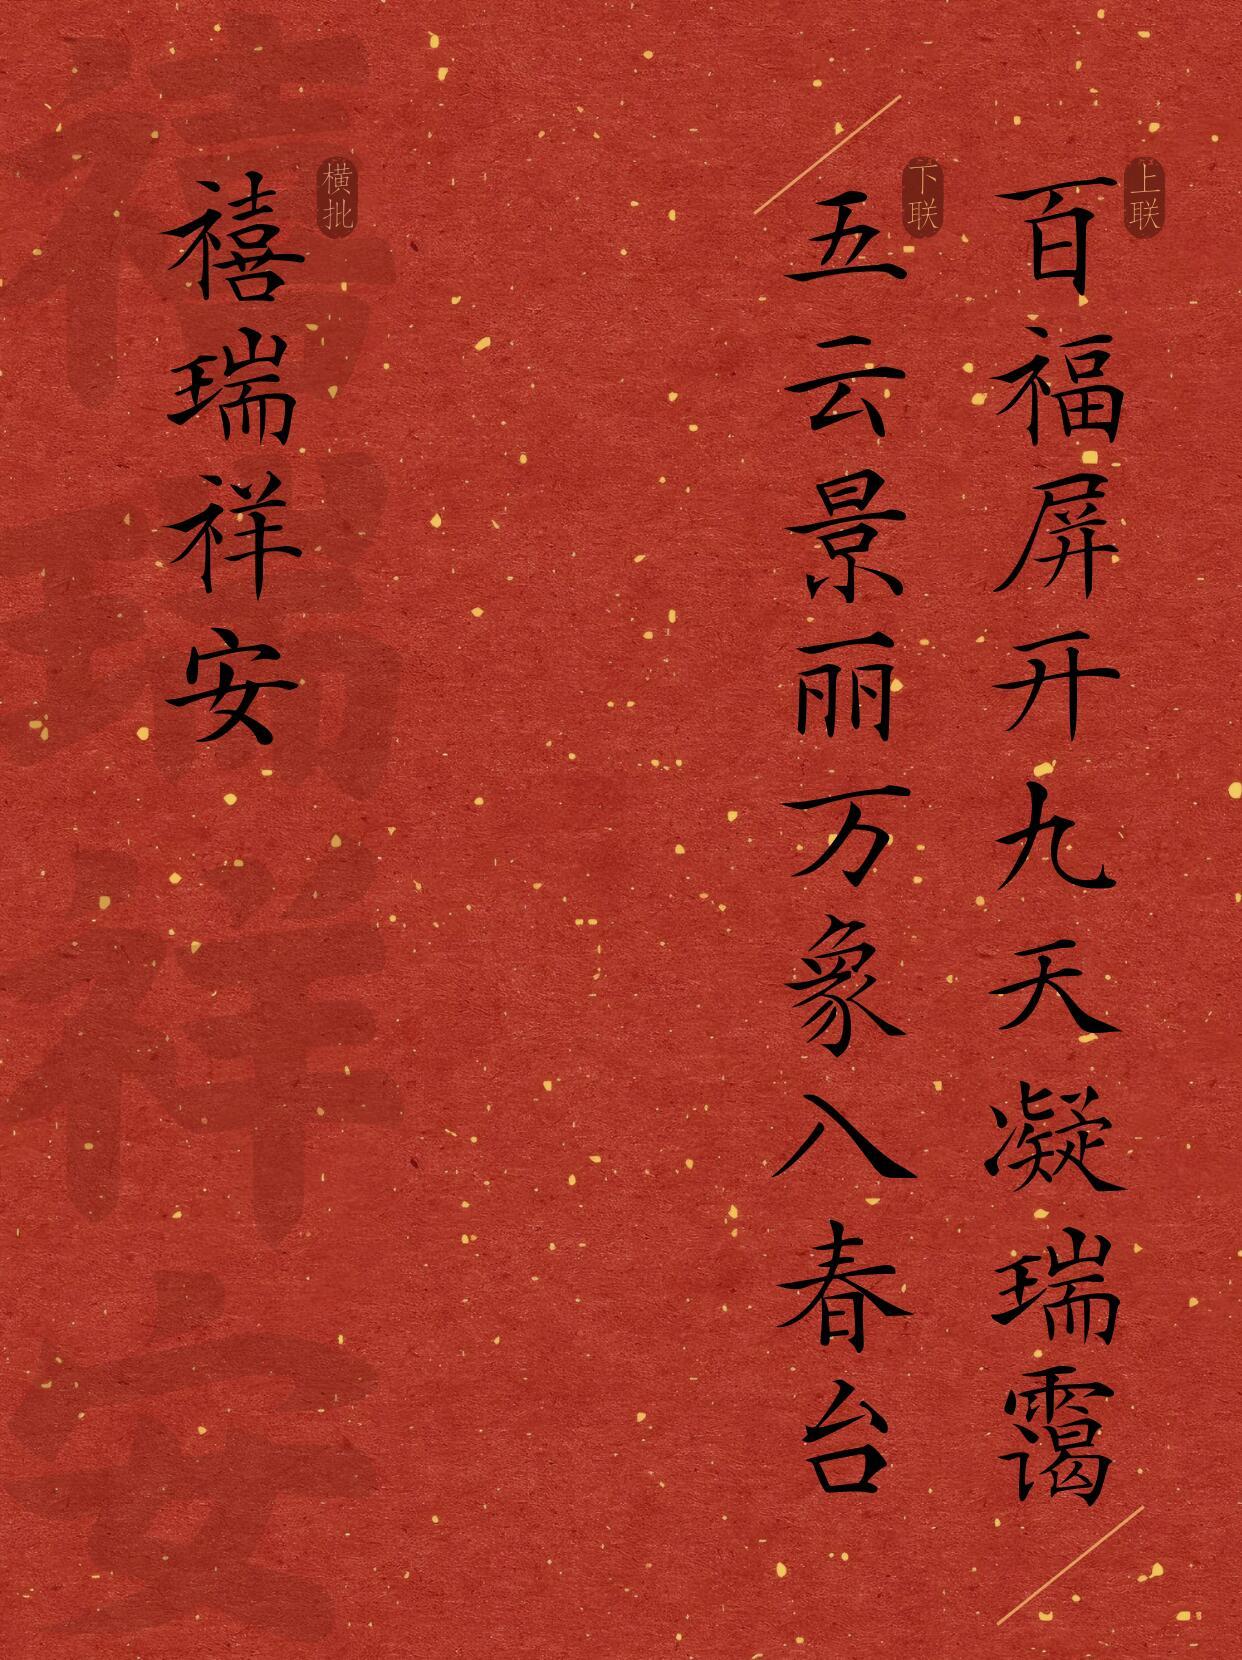 上联
百福屏开九天凝瑞霭
下联
五云景丽万象入春台
横批
禧瑞祥安
禧瑞祥安